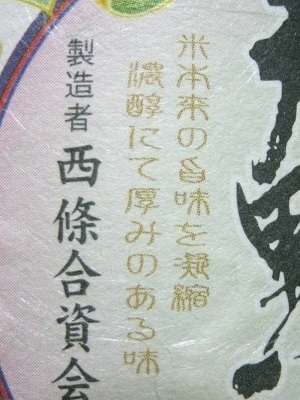 米本来の旨味を凝縮
濃醇にて厚みのある味
製造者 西條合資会